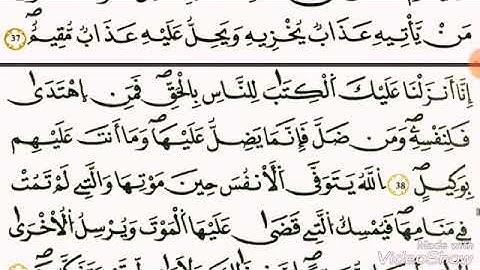 مَنْ يَّأْتِيهِ عَذَابٌ يُخْزِيهِ وَيَحِلُّ عَلَيْهِ عَذَابٌ مُّقِيمٌ 37
اِنَّا أَنزَلْنَا عَلَيْكَ اَلْكِتَٰبَ لِلنَّاسِ بِالْحَقِّ فَمَنِ اِهْتَدَىٰ
فَلِنَفْسِهِۦ وَمَن ضَلَّ فَإِنَّمَا يَضِلُّ عَلَيْهَا وَمَا أَنتَ عَلَيْهِم
بِوَكِيلٍ 38 اَللَّهُ يَتَوَفَّى اَلْأَنفُسَ حِينَ مَوْتِهَا وَالتِي لَمْ تَمُتْ
فِي مَنَامِهَا فَيُمْسِكُ اُلتِي قَضَىٰ عَلَيْهَا اَلْمَوْتَ وَيُرْسِلُ اُلْأُخْرَىٰ
Made with
VideoShow